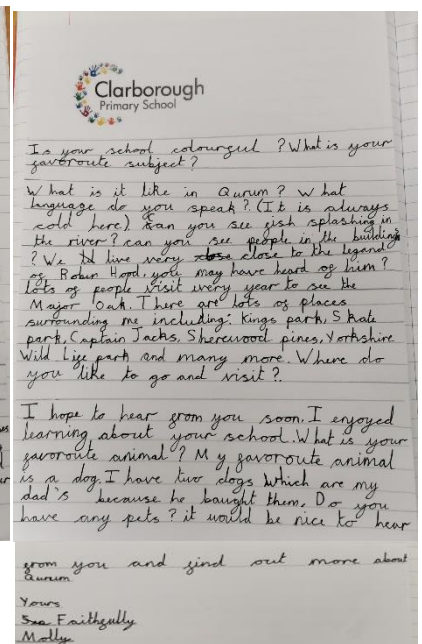 Clarborough
Primary School
Is your school colourful ? What is your
favoroute subject?
What is it like in Qurum? What
language do you speak? (It is always
cold here) Can you see fish splashing in
the river? can you see people in the buildings
? We live very close to the legend
of Robin Hood, you may have heard of him?
lots of people visit every year to see the
Major Oak. There are lots of places
surrounding me including: Kings park, Skate
park, Captain Jacks, Sherewood pines, Yorkshire
Wild Life park and many more. Where do
you like to go and visit?
I hope to hear from you soon. I enjoyed
learning about your school. What is your
favoroute animal? My favoroute animal
is a dog. I have two dogs which are my
dad's because he baught them. Do you
have any pets? it would be nice to hear
from you and find out more about
Qurum
Yours
Faithfully
Molly